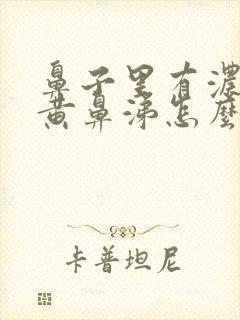 鼻子里有浓
黄鼻涕怎麽
卡普坦尼